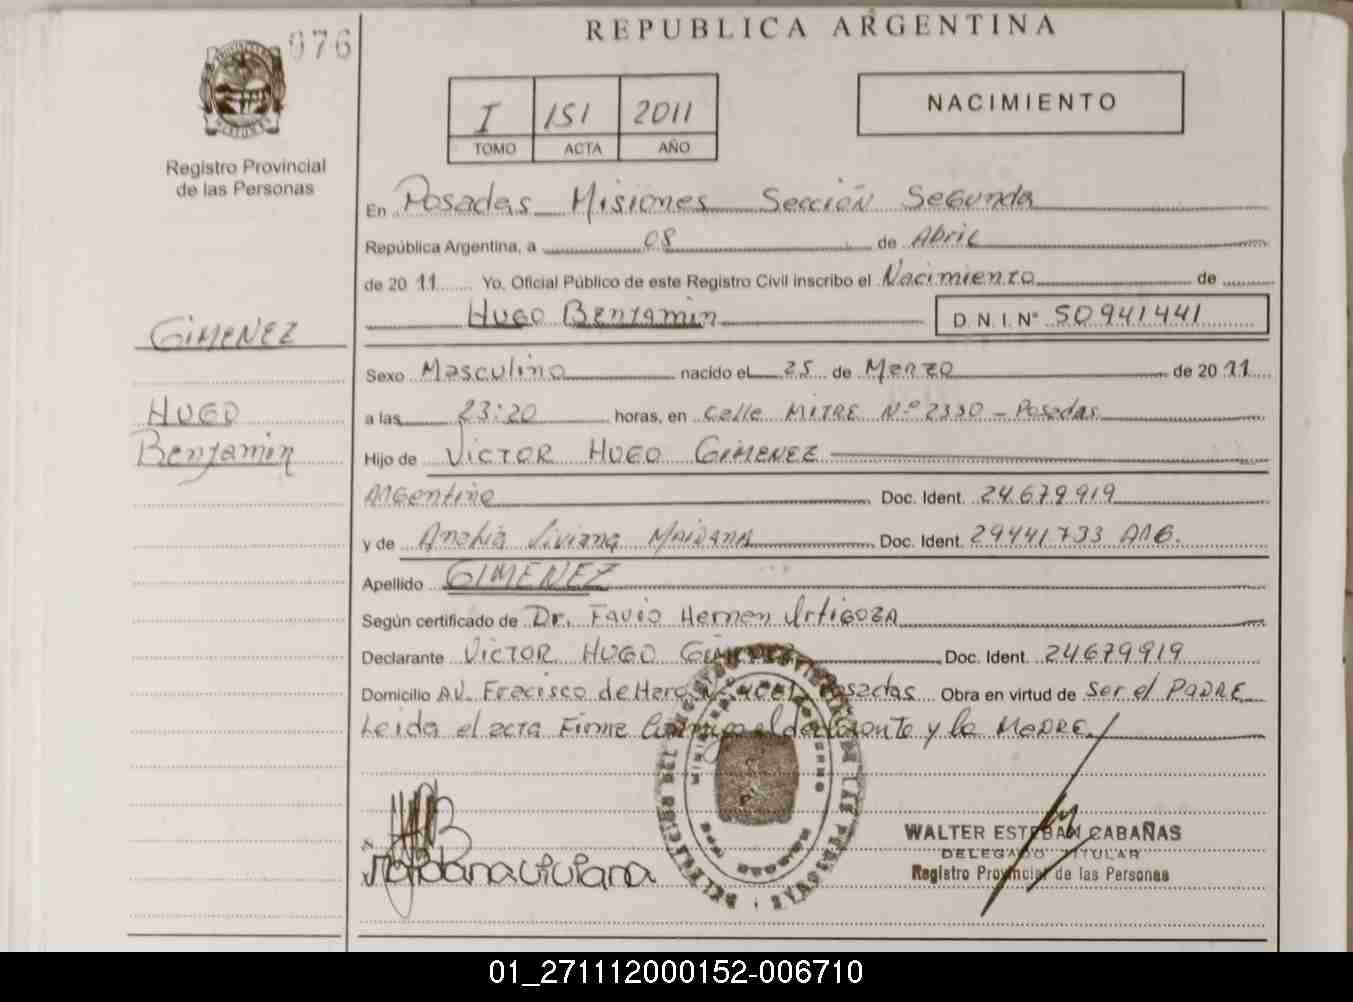 076
REPUBLICA ARGENTINA
I 151 2011
TOMO ACTA AÑO
NACIMIENTO
Registro Provincial
de las Personas
En Posadas Misiones Sección Segunda
República Argentina, a 08 de Abril
de 20 11 Yo, Oficial Público de este Registro Civil inscribo el Nacimiento de
Hugo Benjamin D.N.I. N° 50941441
GIMENEZ
HUGO
Benjamin
Sexo Masculino nacido el 25 de Marzo de 20 11
a las 23:20 horas, en Calle MITRE N° 2330 - Posadas
Hijo de VICTOR HUGO GIMENEZ
Argentino Doc. Ident. 24.679.919
y de Viviana MAIDANA Doc. Ident. 29441733 ARG.
Apellido GIMENEZ
Según certificado de Dr. Favio Hernan Urtigoza
Declarante VICTOR HUGO GIMENEZ Doc. Ident. 24679919
Domicilio AV. Fracisco de Haro Posadas Obra en virtud de Ser el PADRE
Leida el acta Firma conmigo el declarante y la MADRE
Maidana Viviana
WALTER ESTEBAN CABAÑAS
DELEGADO TITULAR
Registro Provincial de las Personas
01_271112000152-006710